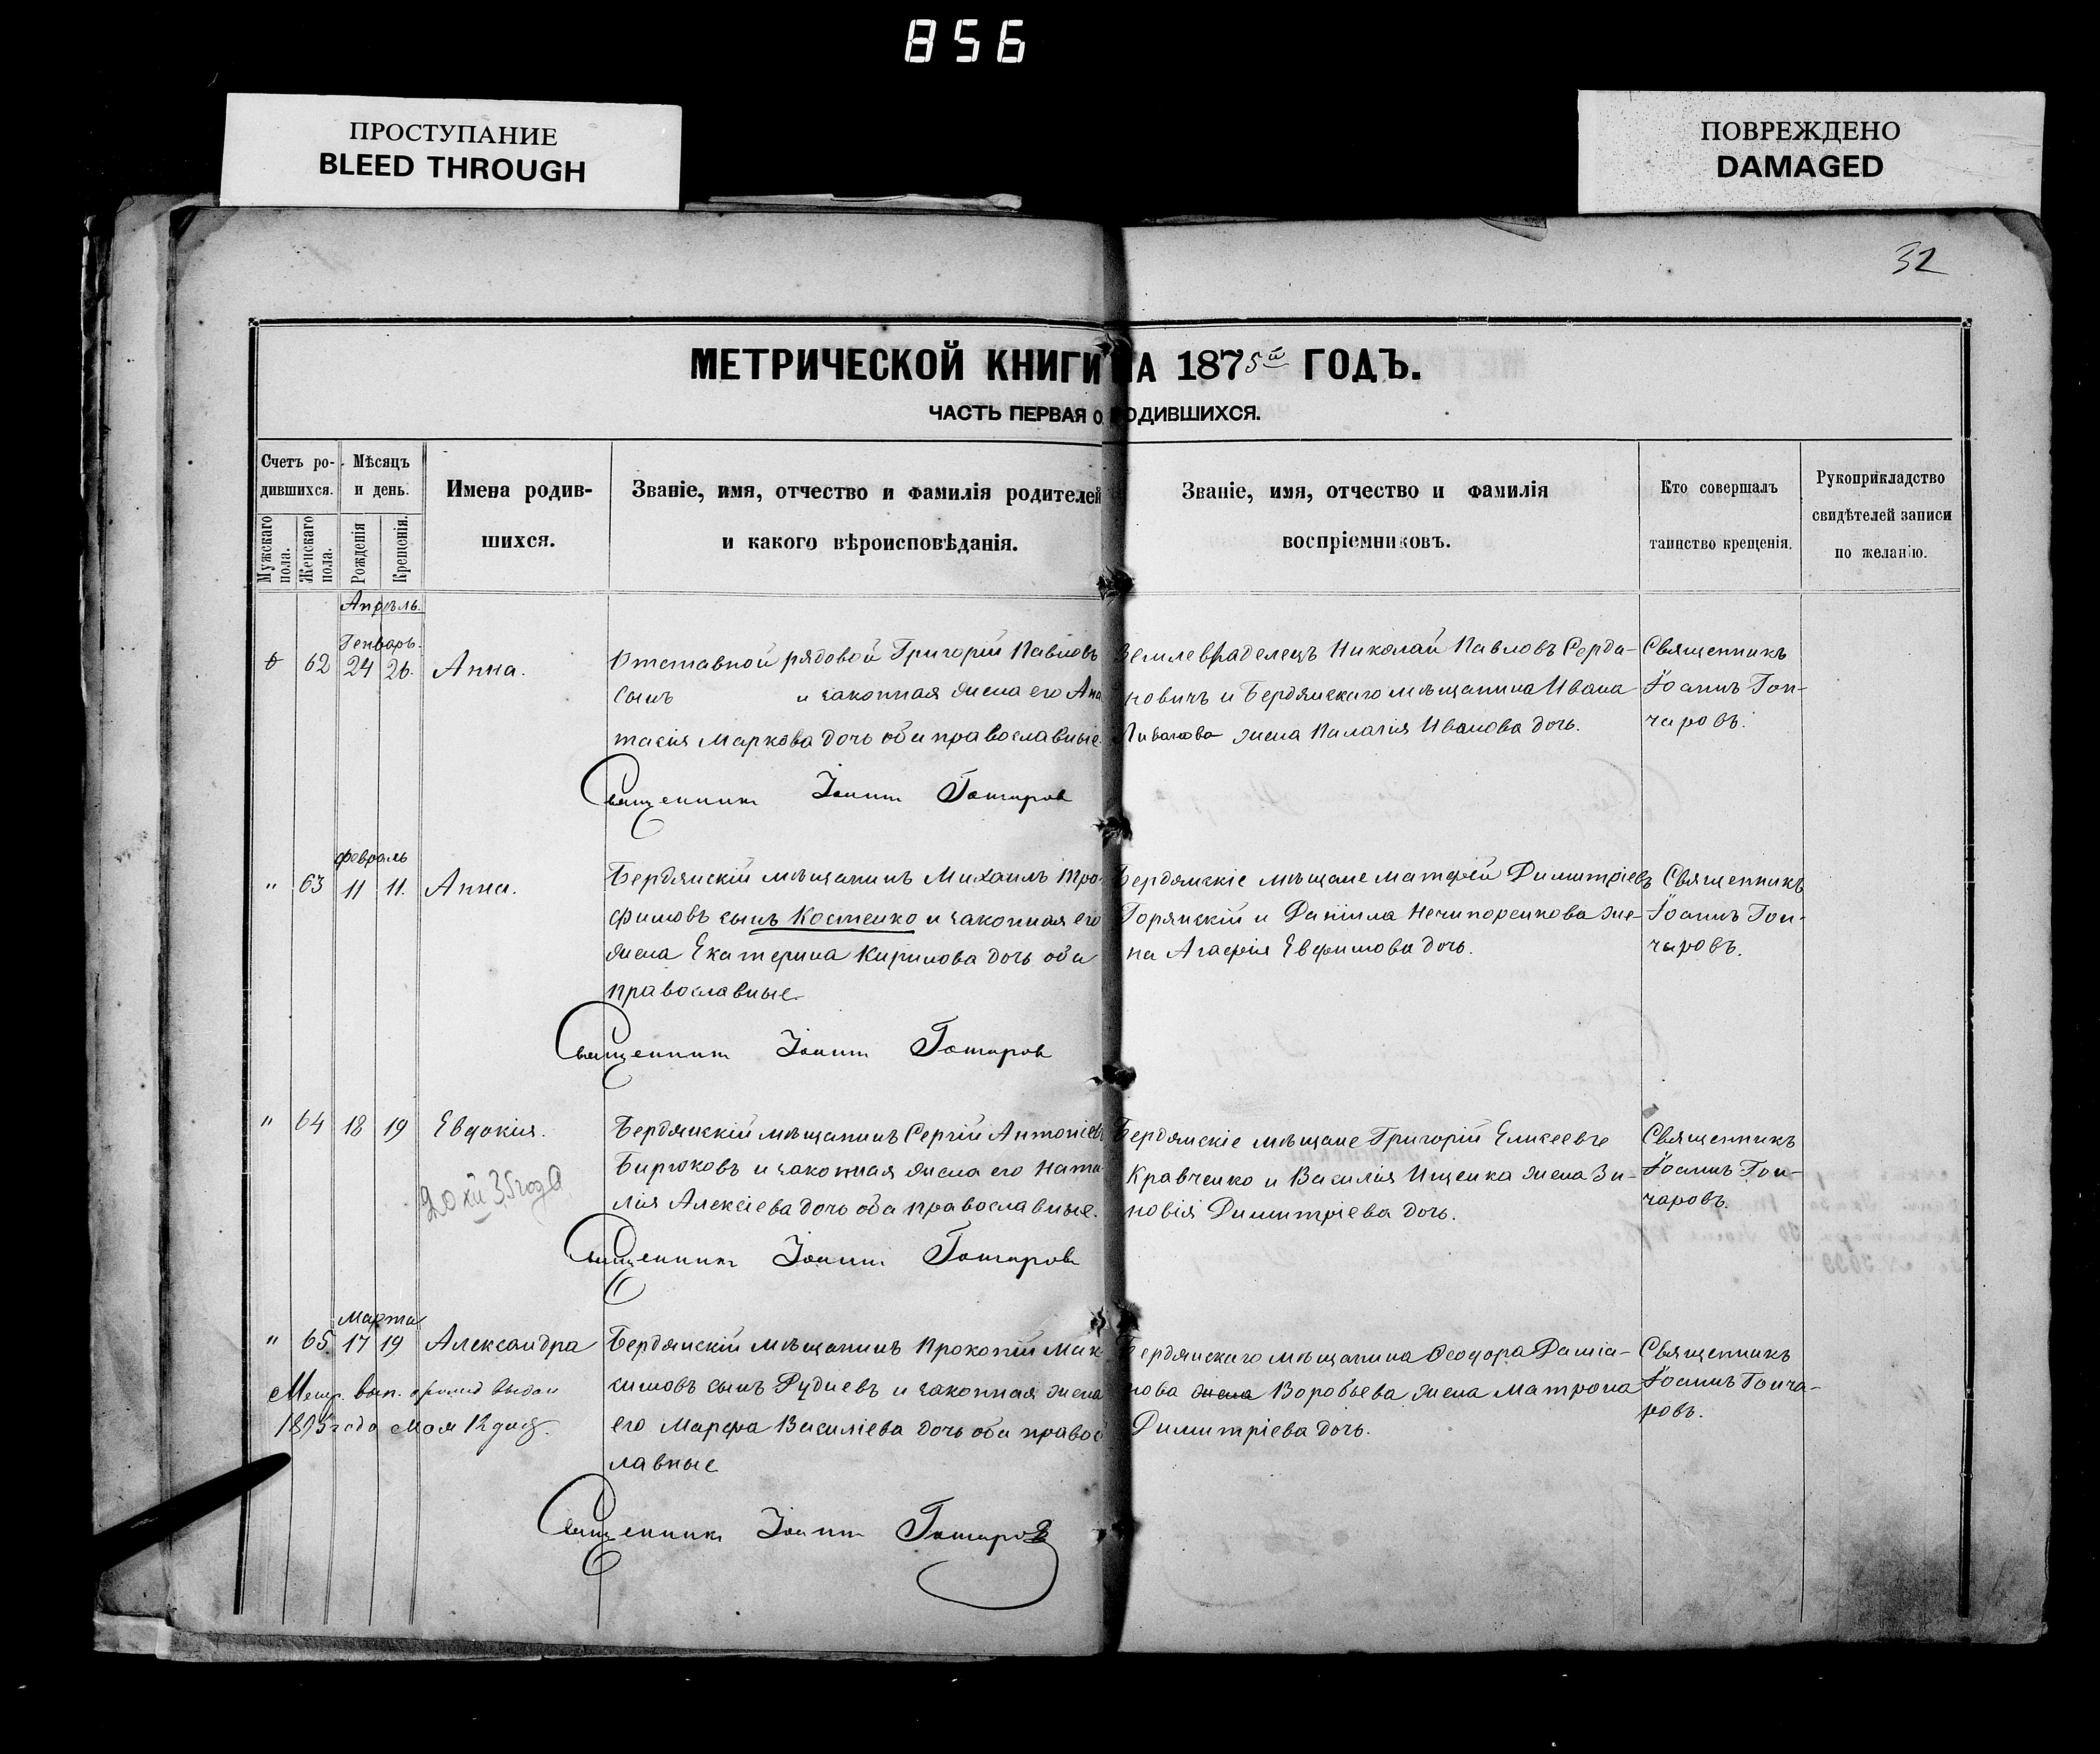 856
ПРОСТУПАНИЕ
BLEED THROUGH
ПОВРЕЖДЕНО
DAMAGED
32
МЕТРИЧЕСКОЙ КНИГИ НА 1875й ГОДЪ.
ЧАСТЬ ПЕРВАЯ О РОДИВШИХСЯ.
Счетъ ро-
дившихся.
Мужскаго пола.
Женскаго пола.
Мѣсяцъ
и день.
Рожденія
Крещенія.
Имена родив-
шихся.
Званіе, имя, отчество и фамилія родителей
и какого вѣроисповѣданія.
Званіе, имя, отчество и фамилія
воспріемниковъ.
Кто совершалъ
таинство крещенія.
Рукоприкладство
свидѣтелей записи
по желанію.
Апрѣль.
Генварь.
62 24 26. Анна.
Отставной рядовой Григорій Павловъ
сынъ и законная жена его Ана
тасія Маркова дочь оба православные.
Землевладелецъ Николай Павловъ Серда-
новичъ и Бердянскаго мѣщанина Ивана
жена Палагія Иванова дочь.
Священникъ
Іоаннъ Гон-
чаровъ.
Священникъ Іоаннъ Гончаровъ
Февраль
" 63 11 11. Анна.
Бердянскій мѣщанинъ Михаилъ Тро-
фимовъ сынъ Костенко и законная его
жена Екатерина Кирилова дочь оба
православные.
Бердянскіе мѣщане Матфей Димитріевъ
Горянскій и Даніила Нечипоренкова же-
на Агафія Евфимова дочь.
Священникъ
Іоаннъ Гон-
чаровъ.
Священникъ Іоаннъ Гончаровъ
" 64 18 19 Евдокія.
20 XII 35 года
Бердянскій мѣщанинъ Сергій Антоніевъ
Бирюковъ и законная жена его Ната-
лія Алексіева дочь оба православные.
Бердянскіе мѣщане Григорій Елисеевъ
Кравченко и Василія Ищенка жена Зи-
новія Димитріева дочь.
Священникъ
Іоаннъ Гон-
чаровъ.
Священникъ Іоаннъ Гончаровъ
Марта
" 65. 17 19 Александра
Метр. вып.
1895 года Мая 12 дня.
Бердянскій мѣщанинъ Прокопій Мак-
симовъ сынъ Рудневъ и законная жена
его Марфа Василіева дочь оба правос
лавные
Бердянскаго мѣщанина Ѳеодора Даміа-
нова жена Воробьева жена Матрона
Димитріева дочь.
Священникъ
Іоаннъ Гонча-
ровъ.
Священникъ Іоаннъ Гончаровъ